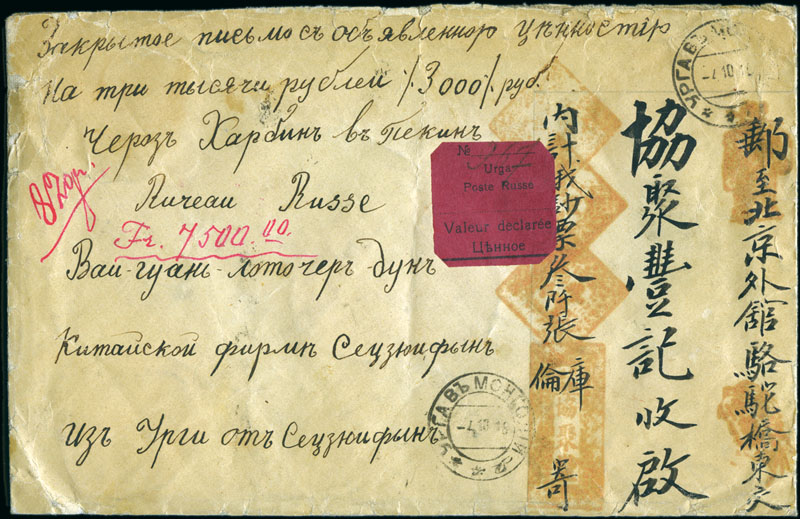 Закрытое письмо съ объявленною цѣнностію
На три тысячи рублей /3000/ руб.
Черозъ Харбинъ въ Пекинъ
Bureau Russe
82 or.
Fr. 7500.00.
Вай-гуань-лоточеръ дунъ
Китайской фирмѣ Сецзюифынъ
Изъ Урги отъ Сецзюифынъ
№
Urga
Poste Russe
Valeur déclarée
Цѣнное
УРГА ВЪ МОНГОЛІИ
УРГА ВЪ МОНГОЛІИ
郵至北京外舘駱駝橋東交
協聚豐記收啟
內計我鈔票叁阡張
庫倫
寄